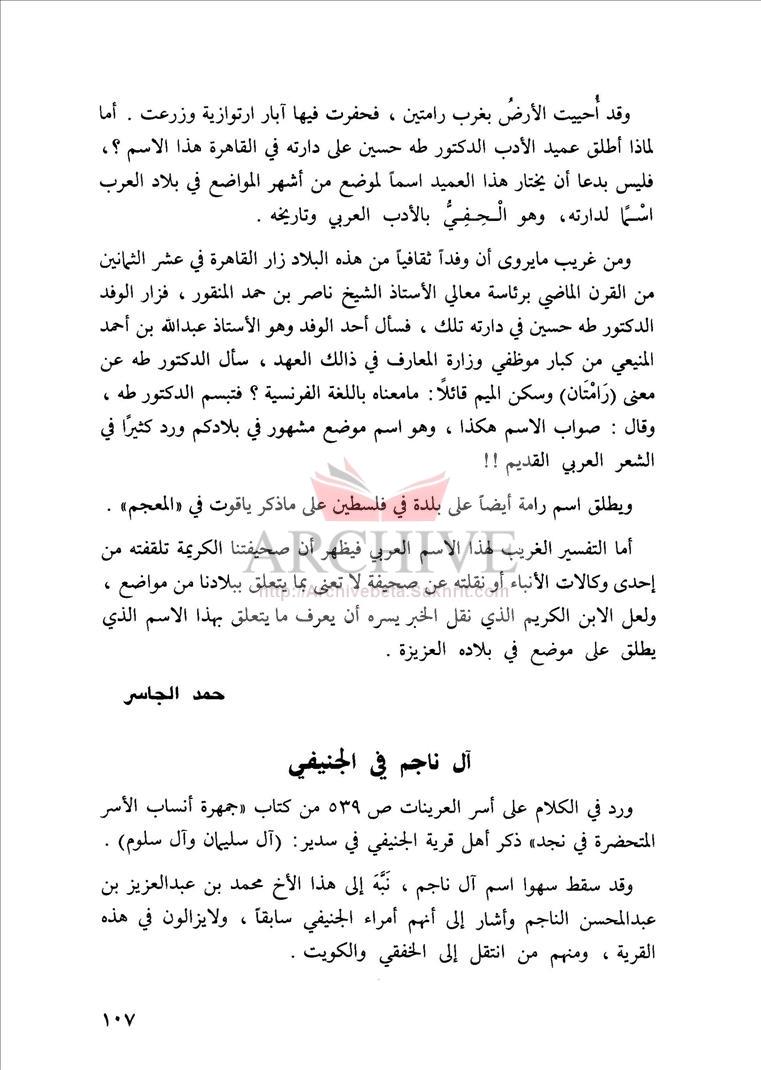 وقد أُحييت الأرضُ بغرب رامتين ، فحفرت فيها آبار ارتوازية وزرعت . أما
لماذا أطلق عميد الأدب الدكتور طه حسين على دارته في القاهرة هذا الاسم ؟،
فليس بدعا أن يختار هذا العميد اسماً لموضع من أشهر المواضع في بلاد العرب
اسْـمًا لدارته، وهو الْـحِـفِـيُّ بالأدب العربي وتاريخه .
ومن غريب مايروى أن وفداً ثقافياً من هذه البلاد زار القاهرة في عشر الثمانين
من القرن الماضي برئاسة معالي الأستاذ الشيخ ناصر بن حمد المنقور ، فزار الوفد
الدكتور طه حسين في دارته تلك ، فسأل أحد الوفد وهو الأستاذ عبدالله بن أحمد
المنيعي من كبار موظفي وزارة المعارف في ذالك العهد ، سأل الدكتور طه عن
معنى (رَامْتَان) وسكن الميم قائلًا: مامعناه باللغة الفرنسية ؟ فتبسم الدكتور طه ،
وقال : صواب الاسم هكذا ، وهو اسم موضع مشهور في بلادكم ورد كثيرًا في
الشعر العربي القديم !!
ويطلق اسم رامة أيضاً على بلدة في فلسطين على ماذكر ياقوت في «المعجم» .
أما التفسير الغريب لهذا الاسم العربي فيظهر أن صحيفتنا الكريمة تلقفته من
ARCHIVE
إحدى وكالات الأنباء أو نقلته عن صحيفة لا تعنى بما يتعلق ببلادنا من مواضع ،
http://Archivebeta.Sakhrit.com
ولعل الابن الكريم الذي نقل الخبر يسره أن يعرف ما يتعلق بهذا الاسم الذي
يطلق على موضع في بلاده العزيزة .
حمد الجاسر
آل ناجم في الجنيفي
ورد في الكلام على أسر العرينات ص ٥٣٩ من كتاب «جمهرة أنساب الأسر
المتحضرة في نجد» ذكر أهل قرية الجنيفي في سدير: (آل سليمان وآل سلوم) .
وقد سقط سهوا اسم آل ناجم ، نَبَّهَ إلى هذا الأخ محمد بن عبدالعزيز بن
عبدالمحسن الناجم وأشار إلى أنهم أمراء الجنيفي سابقاً ، ولايزالون في هذه
القرية ، ومنهم من انتقل إلى الخفقي والكويت .
١٠٧